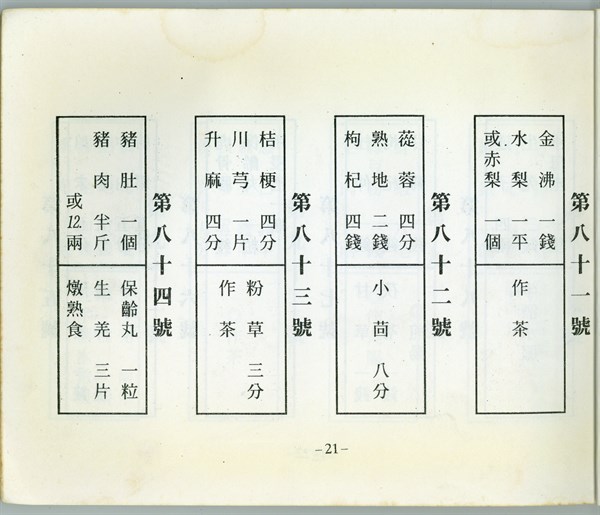 第八十一號
金沸一錢
水梨一平
或赤梨一個
作茶
第八十二號
蓯蓉四分
熟地二錢
枸杞四錢
小茴八分
第八十三號
桔梗四分
川芎一片
升麻四分
粉草三分
作茶
第八十四號
豬肚一個
豬肉半斤
或12兩
保齡丸一粒
生羌三片
燉熟食
-21-